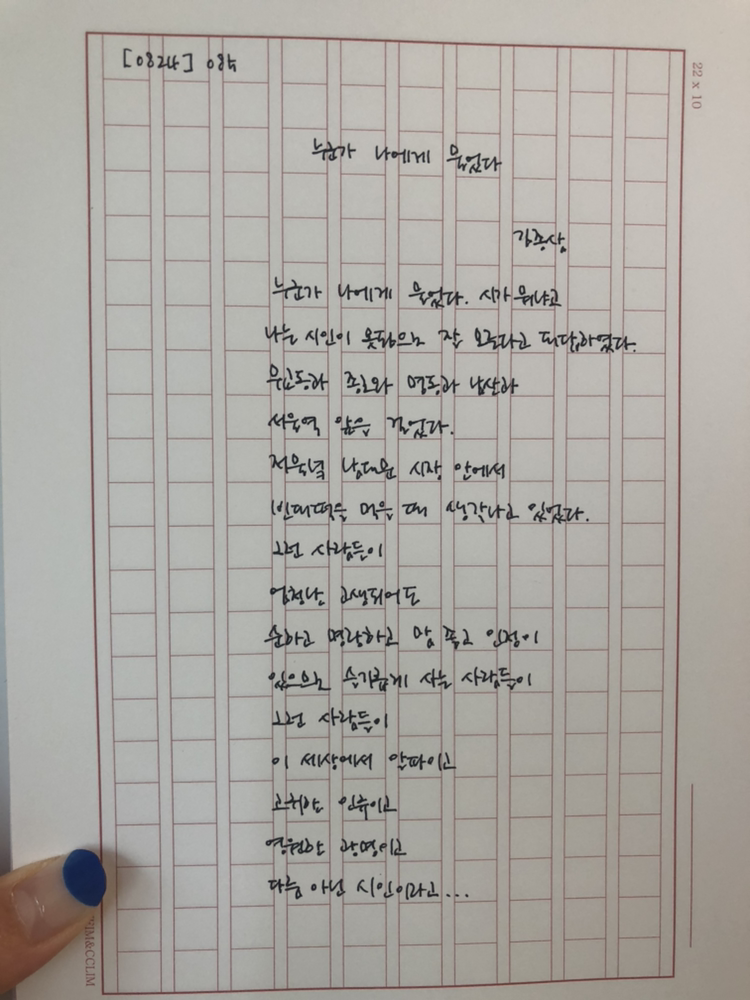 [0824] 085
22 x 10
누군가 나에게 물었다
김종삼
누군가 나에게 물었다. 시가 뭐냐고
나는 시인이 못됨으로 잘 모른다고 대답하였다.
무교동과 종로와 명동과 남산과
서울역 앞을 걸었다.
저녁녘 남대문 시장 안에서
빈대떡을 먹을 때 생각나고 있었다.
그런 사람들이
엄청난 고생되어도
순하고 명랑하고 맘 좋고 인정이
있으므로 슬기롭게 사는 사람들이
그런 사람들이
이 세상에서 알파이고
고귀한 인류이고
영원한 광명이고
다름 아닌 시인이라고...
IM&CCLIM